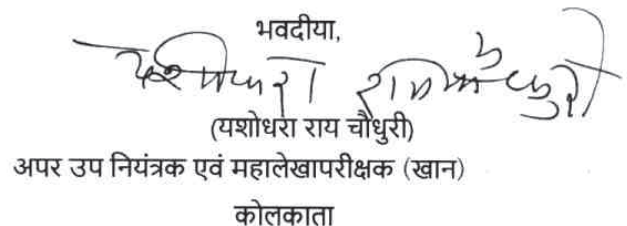 भवदीया,
यशोधरा राय चौधुरी
(यशोधरा राय चौधुरी)
अपर उप नियंत्रक एवं महालेखापरीक्षक (खान)
कोलकाता